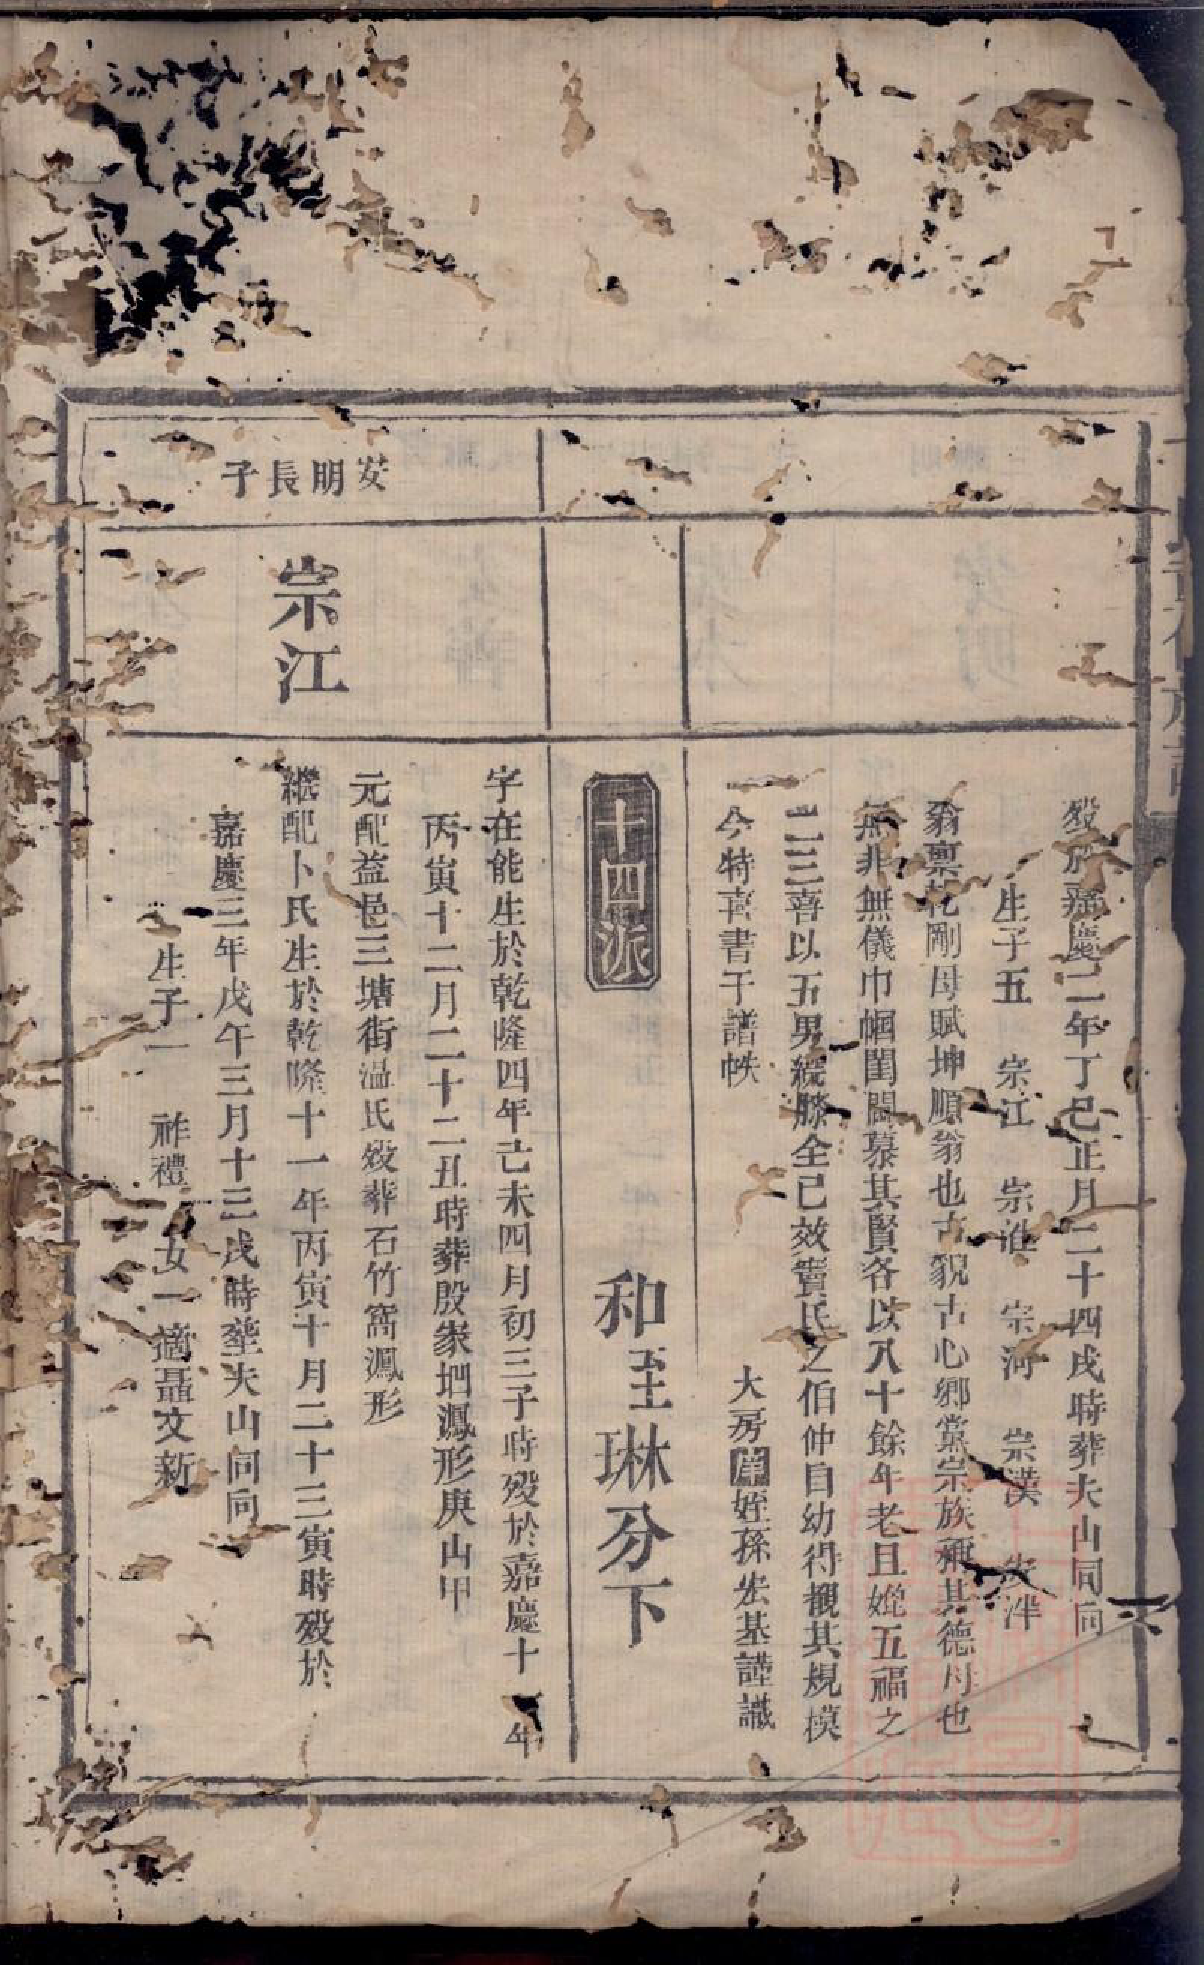 歿於嘉慶二年丁巳正月二十四戌時葬夫山同向
生子五 宗江 宗淮 宗河 宗漢 宗泮
翁禀乾剛母賦坤順翁也古貌古心鄉黨宗族稱其德母也
無非無儀巾幗閨閫慕其賢各以八十餘年老且娩五福之
二三喜以五男繞膝全已效竇氏之伯仲自幼得覩其規模
今特喜書于譜帙
大房 姪孫宏基謹識
十四派
和至琳分下
安明長子
宗江
字在能生於乾隆四年己未四月初三子時歿於嘉慶十一年
丙寅十二月二十二丑時葬殷家坦鳳形庚山甲
元配益邑三塘街溫氏歿葬石竹窩鳳形
繼配卜氏生於乾隆十一年丙寅十月二十三寅時歿於
嘉慶三年戊午三月十三戌時塟夫山同向
生子一 祚禮 女一適聶文新